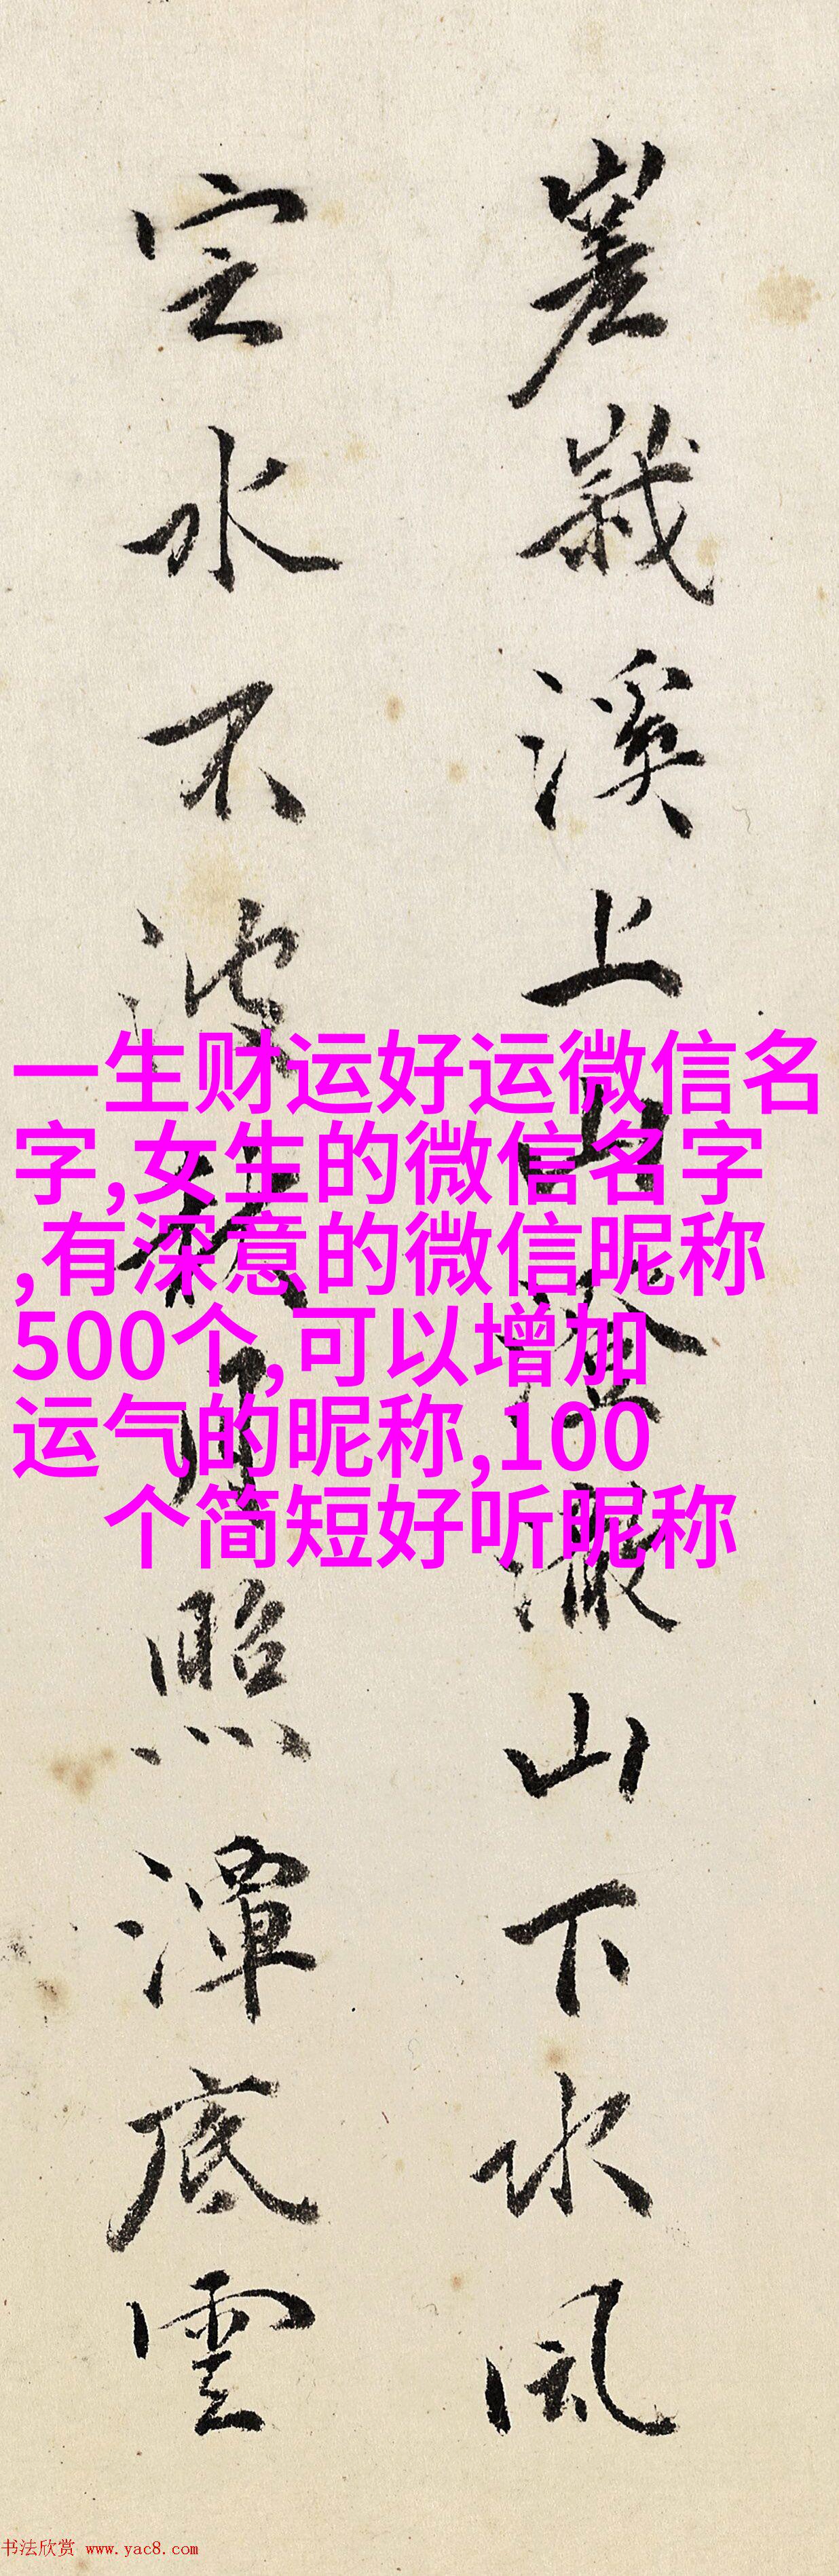 嵳峩溪上山山下水風
定水不月照潭底雲
一生财运好运微信名
字,女生的微信名字
,有深意的微信昵称
500个,可以增加
运气的昵称,100
个简短好听昵称
书法欣赏 www.yac8.com